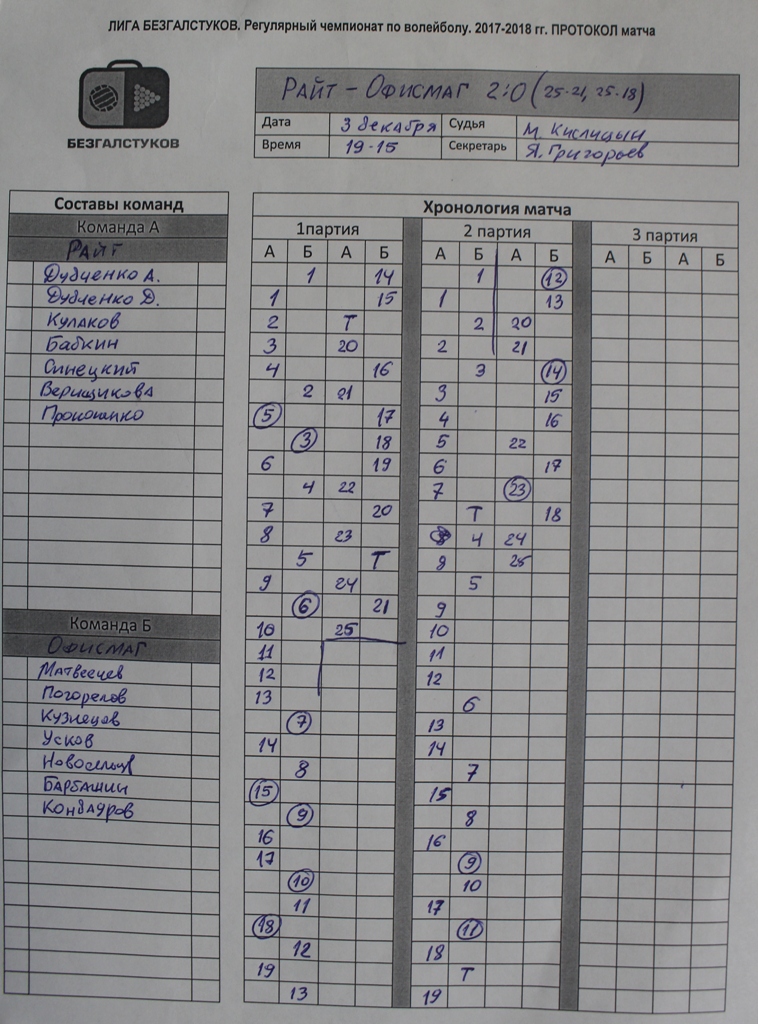 ЛИГА БЕЗГАЛСТУКОВ. Регулярный чемпионат по волейболу. 2017-2018 гг. ПРОТОКОЛ матча
БЕЗГАЛСТУКОВ
РАЙТ - ОФИСМАГ 2:0 (25-21, 25-18)
Дата 3 декабря Судья М. Кислицын
Время 19-15 Секретарь Я. Григорьев
Составы команд
Команда А
РАЙТ
Дубченко А.
Дубченко Д.
Кулаков
Бабкин
Синецкий
Верищикова
Прокошенко
Команда Б
ОФИСМАГ
Матвеечев
Погорелов
Кузнецов
Усков
Новосельцев
Барбашин
Кондауров
Хронология матча
1партия 2 партия 3 партия
А Б А Б А Б А Б А Б А Б
1 14 1 12
1 15 1 13
2 Т 2 20
3 20 2 21
4 16 3 14
2 21 3 15
5 17 4 16
3 18 5 22
6 19 6 17
4 22 7 23
7 20 Т 18
8 23 8 4 24
5 Т 8 25
9 24 5
6 21 9
10 25 10
11 11
12 12
13 6
7 13
14 14
8 7
15 15
9 8
16 16
17 9
10 10
11 17
18 11
12 18
19 Т
13 19